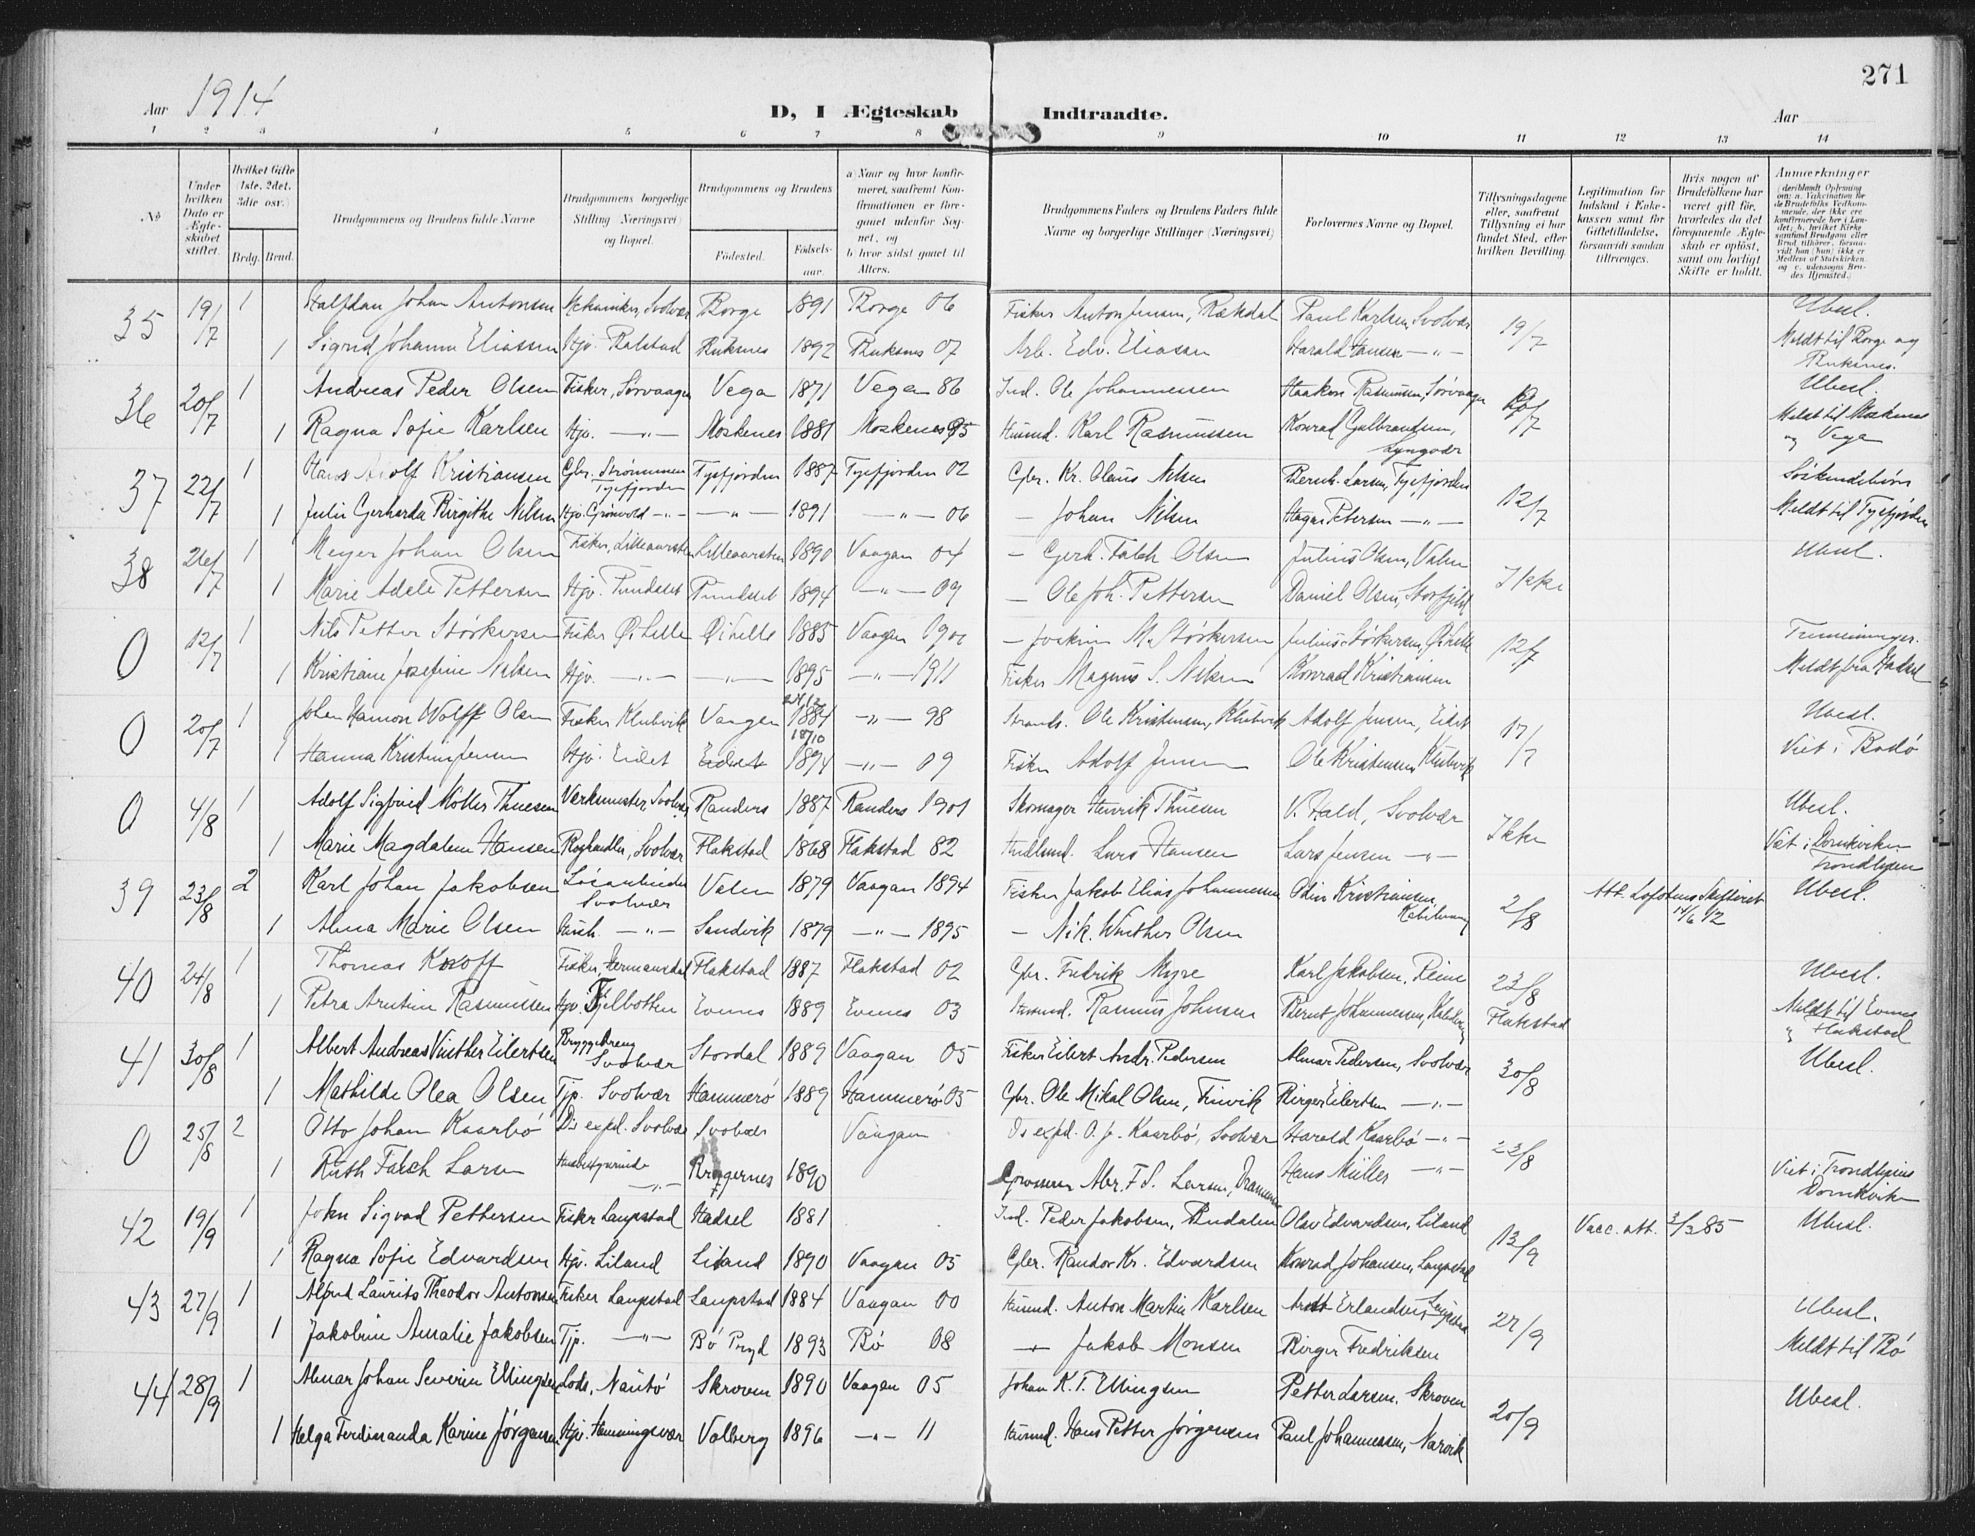 271
Aar 1914 D, I Ægteskab Indtraadte. Aar
1 2 3 4 5 6 7 8 9 10 11 12 13 14
No
Under hvilken Dato er Ægteskabet stiftet.
Hvilket Gifte (1ste, 2det, 3die osv.)
Brdg. Brud.
Brudgommens og Brudens fulde Navne
Brudgommens borgerlige Stilling (Næringsvei) og Bopæl.
Brudgommens og Brudens
Fødested. Fødselsaar.
a) Naar og hvor konfirmeret, saafremt Konfirmationen er foregaaet udenfor Sognet, og
b hvor sidst gaaet til Alters.
Brudgommens Faders og Brudens Faders fulde Navne og borgerlige Stillinger (Næringsvei)
Forlovernes Navne og Bopæl.
Tillysningsdagene eller, saafremt Tillysning ei har fundet Sted, efter hvilken Bevilling.
Legitimation for Indskud i Enkekassen samt for Giftetilladelse, forsaavidt saadan tiltrænges.
Hvis nogen af Brudefolkene har været gift før, hvorledes da det foregaaende Ægteskab er opløst, samt om lovligt Skifte er holdt.
Anmærkninger
35 19/7 1 Halfdan Johan Antonsen Mekaniker, Svolvær Borge 1891 Borge 06 Fisker Anton Jensen, Paul Karlsen, Svolvær 19/7 Ubesl.
1 Sigrid Johanna Eliassen Hjv. Balstad Buksnes 1892 Buksnes 07 Arb. Edv. Eliasen Harald Hansen —„— Meldt til Borge og Buksnes.
36 20/7 1 Andreas Peder Olsen Fisker, Sørvaagen Vega 1871 Vega 86 Ind. Ole Johannessen Haakon Rasmussen, Sørvaagen 12/7 Ubesl.
1 Ragna Sofie Karlsen Hjv. —„— Moskenes 1881 Moskenes 95 Husmd. Karl Rasmussen Konrad Gulbrandsen, Lyngvær Meldt til Moskenes og Vega
37 22/7 1 Hans Adolf Kristiansen Gbr. Strømmen Tysfjorden Tysfjorden 1887 Tysfjorden 02 Gbr. Kr. Olaus Nilsen Bernh. Larsen, Tysfjorden 12/7 Søskendebørn
1 Julie Gerharda Birgithe Nilsen Hjv. Grønvold —„— —„— 1891 —„— 06 — Johan Nilsen Hagar Petersen —„— Meldt til Tysfjorden
38 26/7 1 Meyer Johan Olsen Fisker, Lilleaursten Lilleaursten 1890 Vaagan 04 — Gerh. Falch Olsen Julius Olsen, Valen Ikke Ubesl.
1 Marie Adele Pettersen Hjv. Pundslet Pundslet 1894 —„— 09 — Ole Joh. Pettersen Daniel Olsen, Storfjeld
0 12/7 1 Nils Petter Størkersen Fisker Øihelle Øihelle 1885 Vaagan 1901 — Joakim M. Størkersen Julius Størkersen, Øihelle 12/7 Tremenninger.
1 Kristiane Josefine Nilsen Hjv. —„— —„— 1895 —„— 1911 Fisker Magnus S. Nilsen Konrad Kristiansen Meldt fra Hadsel
0 20/7 1 Johan Hamon Wolff Olsen Fisker Klubvik Vaagan 24/12 1884 —„— 98 Strands. Ole Kristensen, Klubvik Adolf Jensen, Eidet 17/7 Ubesl.
1 Hanna Kristine Jensen Hjv. Eidet Eidet 18/10 1894 —„— 09 Fisker Adolf Jensen Ole Kristensen Klubvik Viet i Bodø
0 4/8 1 Adolf Sigfried Møller Thuesen Værkmester, Svolvær Randers 1887 Randers 1901 Skomager Henrik Thuesen V. Hald, Svolvær Ikke Ubesl.
1 Marie Magdalena Hansen Boghandler, Svolvær Flakstad 1868 Flakstad 82 Lars Hansen Lars Jensen —„— Viet i Domkirken Trondhjem
39 23/8 2 Karl Johan Jakobsen Løsarbeider Svolvær Valen 1879 Vaagan 1894 Fisker Jakob Elias Johannessen Odin Kristiansen, Kabelvaag 2/8 Att. Lofotens Skifteret 14/6 12 Ubesl.
1 Alma Marie Olsen Hush. —„— Sandvik 1879 —„— 1895 — Nik. Winther Olsen
40 24/8 1 Thomas Fisker, Hermansdal Flakstad 1887 Flakstad 02 Gbr. Fredrik Myre Karl Jakobsen, Reine 23/8 Flakstad Ubesl.
1 Petra Arntine Rasmussen Hjv. Fjelbotten Evenes 1889 Evenes 03 Husmd. Rasmus Johnsen Bernt Johannessen, Kabelvaag Meldt til Evenes „ Flakstad
41 30/8 1 Albert Andreas Vinther Eilertsen Bryggedreng Svolvær Stordal 1889 Vaagan 05 Fisker Eilert Andr. Pedersen Almar Pedersen, Svolvær 30/8 Ubesl.
1 Mathilde Olea Olsen Tjp. Svolvær Hammerø 1889 Hammerø 05 Gbr. Ole Mikal Olsen, Finvik Birger Eilertsen —„—
0 25/8 2 Otto Johan Kaarbø Ds exped. Svolvær Svolvær Vaagan Ds exped. O. J. Kaarbø, Svolvær Harald Kaarbø —„— 23/8
1 Ruth Falch Larsen —„— Bragernes 1890 Grosserer Abr. F. S. Larsen, Drammen Hans Müller —„— Viet i Trondhjems Domkirke
42 19/9 1 John Sigvad Pettersen Fisker Laupstad Hadsel 1881 Ind. Peder Jakobsen, Olav Edvardsen, Liland 13/9 Vacc. att. 3/3 85 Ubesl.
1 Ragna Sofie Edvardsen Hjv. Liland Liland 1890 Vaagan 05 Gbr. Randor Kr. Edvardsen Konrad Johansen, Laupstad
43 27/9 1 Alfred Laurits Theodor Antonsen Fisker Laupstad Laupstad 1884 Vaagan 00 Husmd. Anton Martin Karlsen Erlandsen, Laupstad 27/9 Ubesl.
1 Jakobine Amalie Jakobsen Tjp. —„— Bø Pryd 1893 Bø 08 —„— Jakob Monsen Birger Fredriksen Meldt til Bø
44 28/9 1 Almar Johan Severin Ellingsen Lods, Nautø Skroven 1890 Vaagan 05 Johan K. T. Ellingsen Petter Larsen, Skroven 20/9 Ubesl.
1 Helga Ferdinanda Karine Jørgensen Hjv. Henningsvær Valberg 1896 —„— 11 Husmd. Hans Petter Jørgensen Paul Johannessen, Narvik